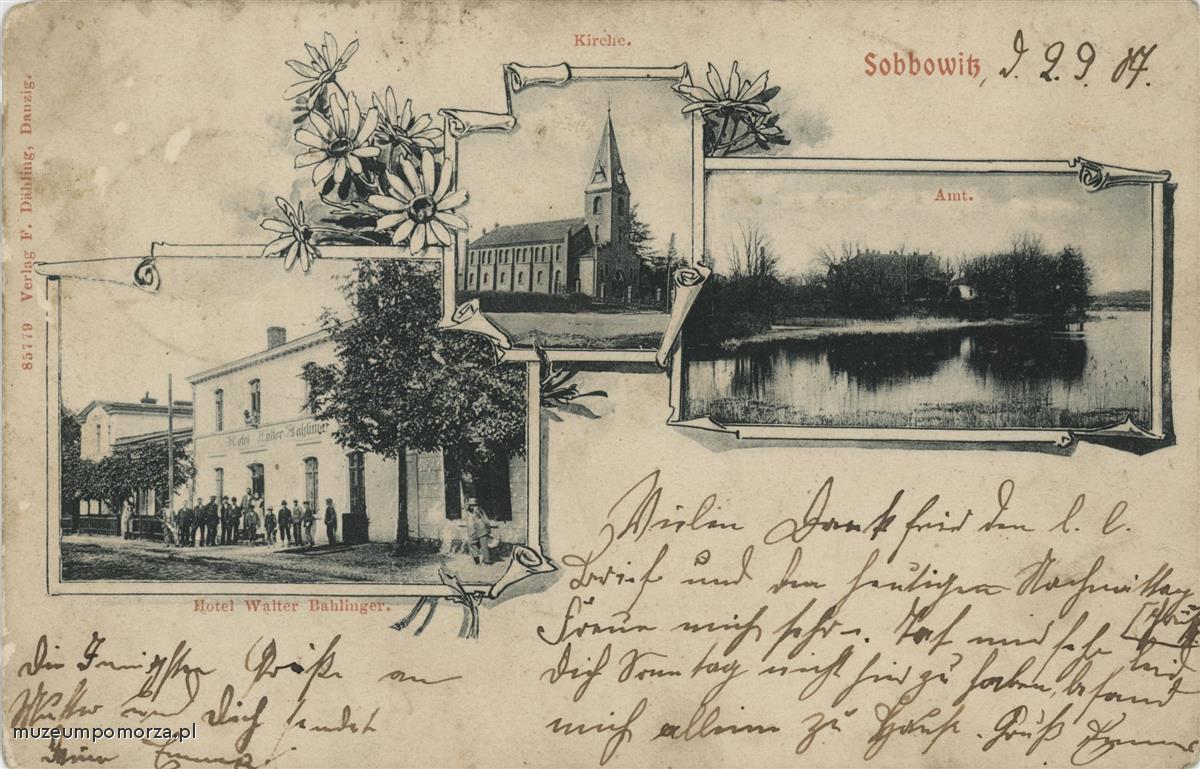 Kirche.
Sobbowitz, d. 2 9 07.
85779 Verlag F. Dähling, Danzig.
Amt.
Hotel Walter Bahlinger
Hotel Walter Bahlinger.
Vielen Dank für den l. l.
Brief und den heutigen Nachmittag
Freue mich sehr. Tat mir sehr leid
Dich Sonntag nicht hier zu haben, befand
mich allein zu Haus. Gruß
Die Innigsten Grüße an
Mutter und Dich sendet
muzeumpomorza.pl